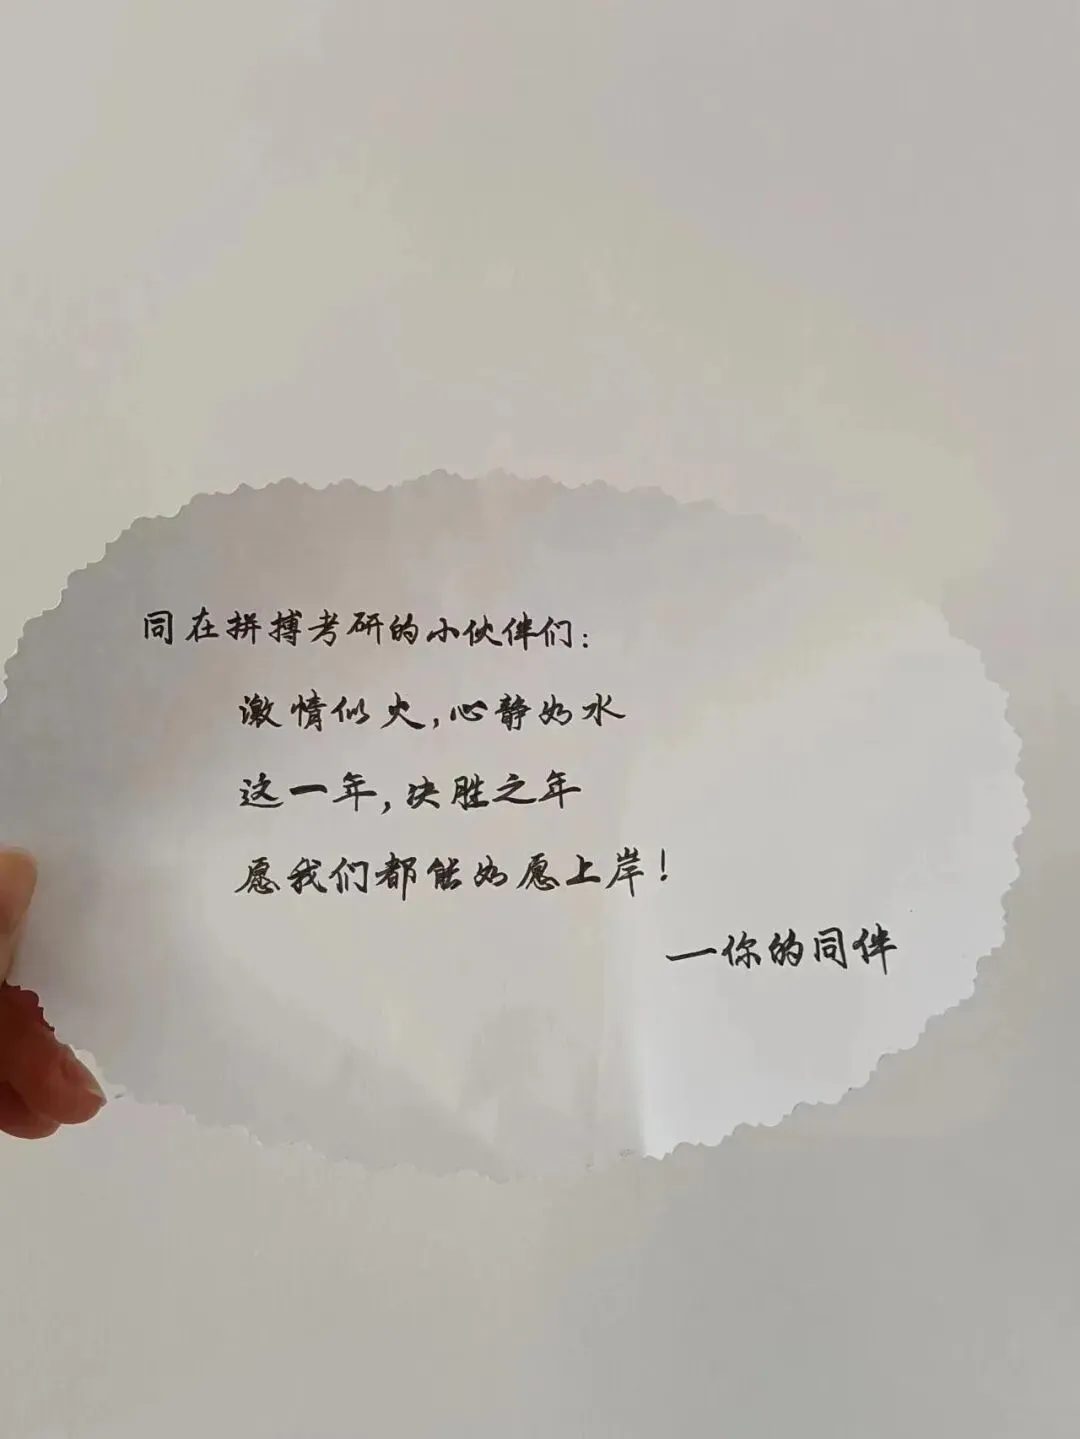 同在拼搏考研的小伙伴们：
激情似火，心静如水
这一年，决胜之年
愿我们都能如愿上岸！
—你的同伴